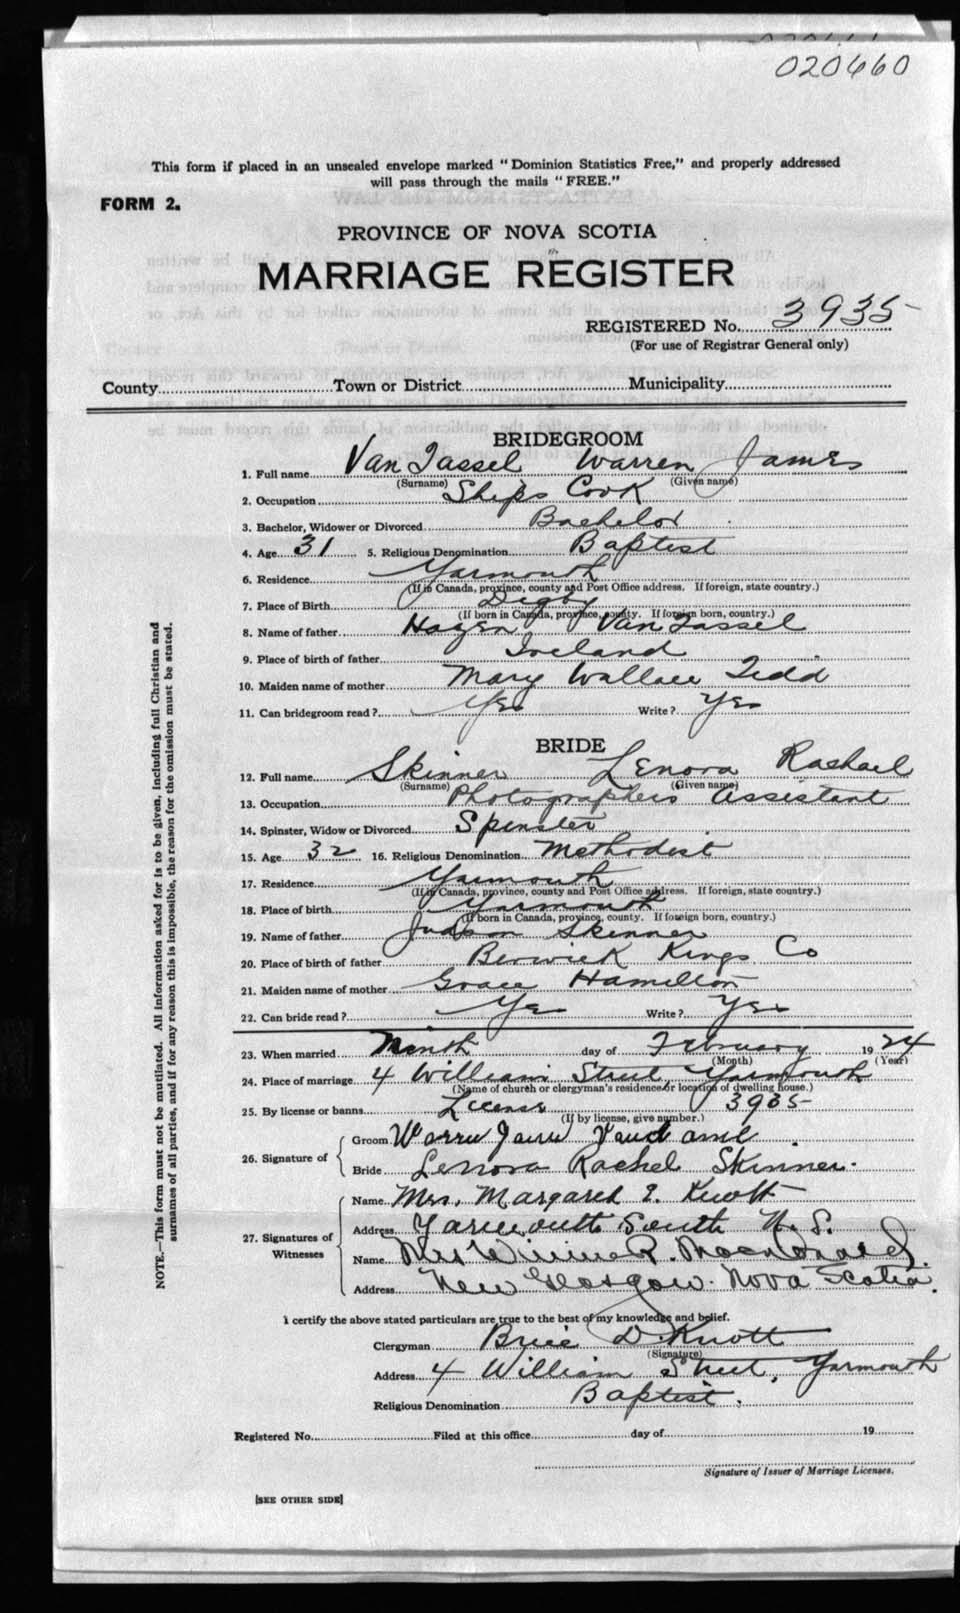 020660
This form if placed in an unsealed envelope marked "Dominion Statistics Free," and properly addressed
will pass through the mails "FREE."
FORM 2.
PROVINCE OF NOVA SCOTIA
MARRIAGE REGISTER
REGISTERED No. 3935
(For use of Registrar General only)
County Town or District Municipality
BRIDEGROOM
1. Full name Van Tassel Warren James
(Surname) (Given name)
2. Occupation Ships Cook
3. Bachelor, Widower or Divorced Bachelor
4. Age 31 5. Religious Denomination Baptist
6. Residence Yarmouth
(If in Canada, province, county and Post Office address. If foreign, state country.)
7. Place of Birth Digby
(If born in Canada, province, county. If foreign born, country.)
8. Name of father Hagen Van Tassel
9. Place of birth of father Ireland
10. Maiden name of mother Mary Wallace Tidd
11. Can bridegroom read? Yes Write? Yes
BRIDE
12. Full name Skinner Lenora Rachael
(Surname) (Given name)
13. Occupation Photographers assistant
14. Spinster, Widow or Divorced Spinster
15. Age 32 16. Religious Denomination Methodist
17. Residence Yarmouth
(If in Canada, province, county and Post Office address. If foreign, state country.)
18. Place of birth Yarmouth
(If born in Canada, province, county. If foreign born, country.)
19. Name of father Judson Skinner
20. Place of birth of father Berwick Kings Co
21. Maiden name of mother Grace Hamilton
22. Can bride read? Yes Write? Yes
23. When married Ninth day of February 1924
(Month) (Year)
24. Place of marriage 4 William Street, Yarmouth
(Name of church or clergyman's residence or location of dwelling house.)
25. By license or banns License 3935
(If by license, give number.)
26. Signature of
Groom Warren James
Bride Lenora Rachel Skinner.
27. Signatures of Witnesses
Name Mrs. Margaret E. Knott
Address Yarmouth South N. S.
Name Mrs Winnie R. MacDonald.
Address New Glasgow. Nova Scotia.
I certify the above stated particulars are true to the best of my knowledge and belief.
Clergyman Brice D. Knott
(Signature)
Address 4 William Street, Yarmouth
Religious Denomination Baptist.
Registered No. Filed at this office day of 19
Signature of Issuer of Marriage Licenses.
[SEE OTHER SIDE]
NOTE.—This form must not be mutilated. All information asked for is to be given, including full Christian and
surnames of all parties, and if for any reason this is impossible, the reason for the omission must be stated.